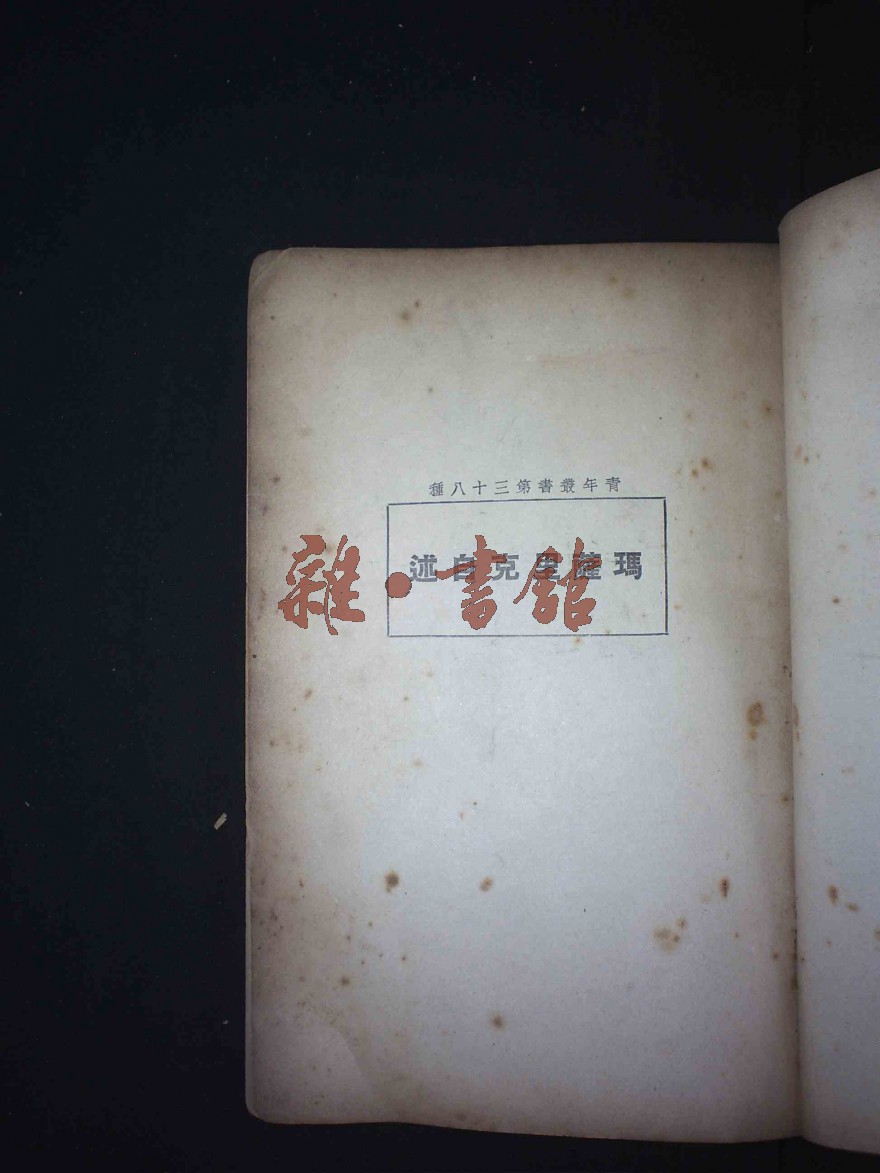 青年叢書第三十八種
瑪薩里克自述
雜·書館